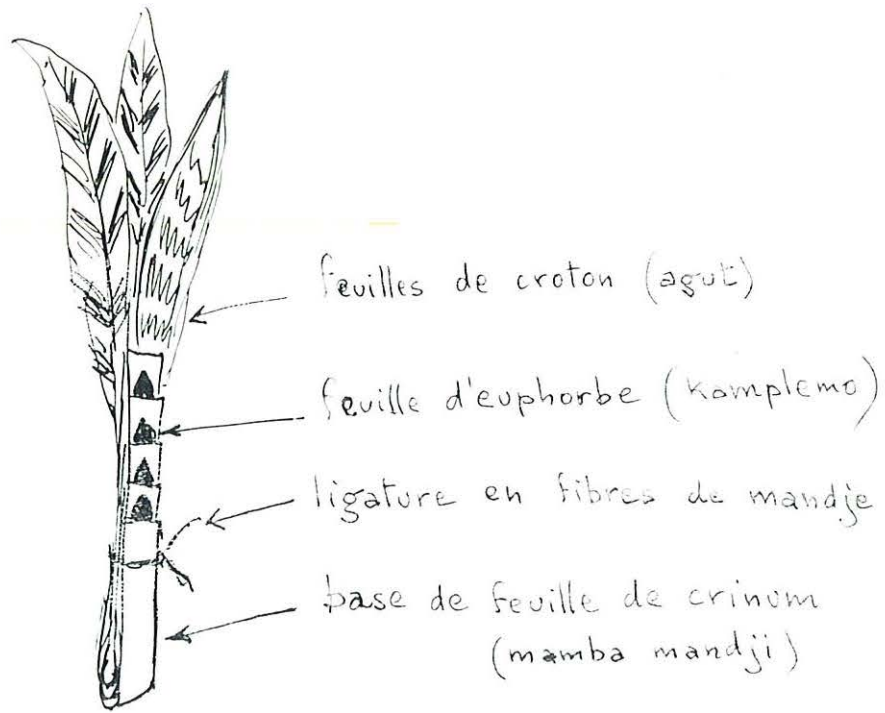 feuilles de croton (agut)
feuille d'euphorbe (Komplemo)
ligature en fibres de mandje
base de feuille de crinum
(mamba mandji)